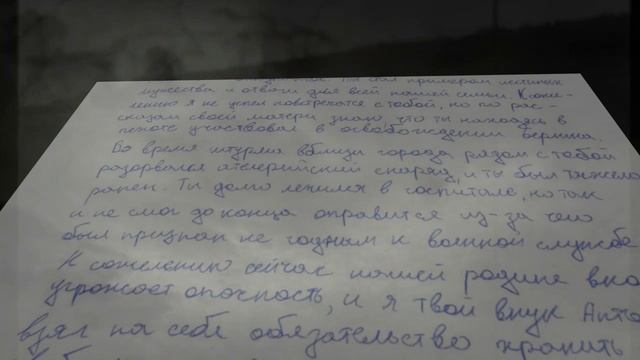 Ты стал примером истинн
мужества и отваги для всей нашей семьи. К сожа-
лению я не успел повстречатся с тобой, но по рас-
сказам своей матери знаю, что ты находясь в
пехоте участвовал в освобождении Берлина.
Во время штурма вблизи города рядом с тобой
разорвался артелерийский снаряд, и ты был тяжело
ранен. Ты долго лечился в госпитале, но так
и не смог до конца оправится из-за чего
был признан не годным к военной службе
К сожелению сейчас нашей родине вно
угрожает опасность, и я твой внук Анто
взял на себя обязательство хранить